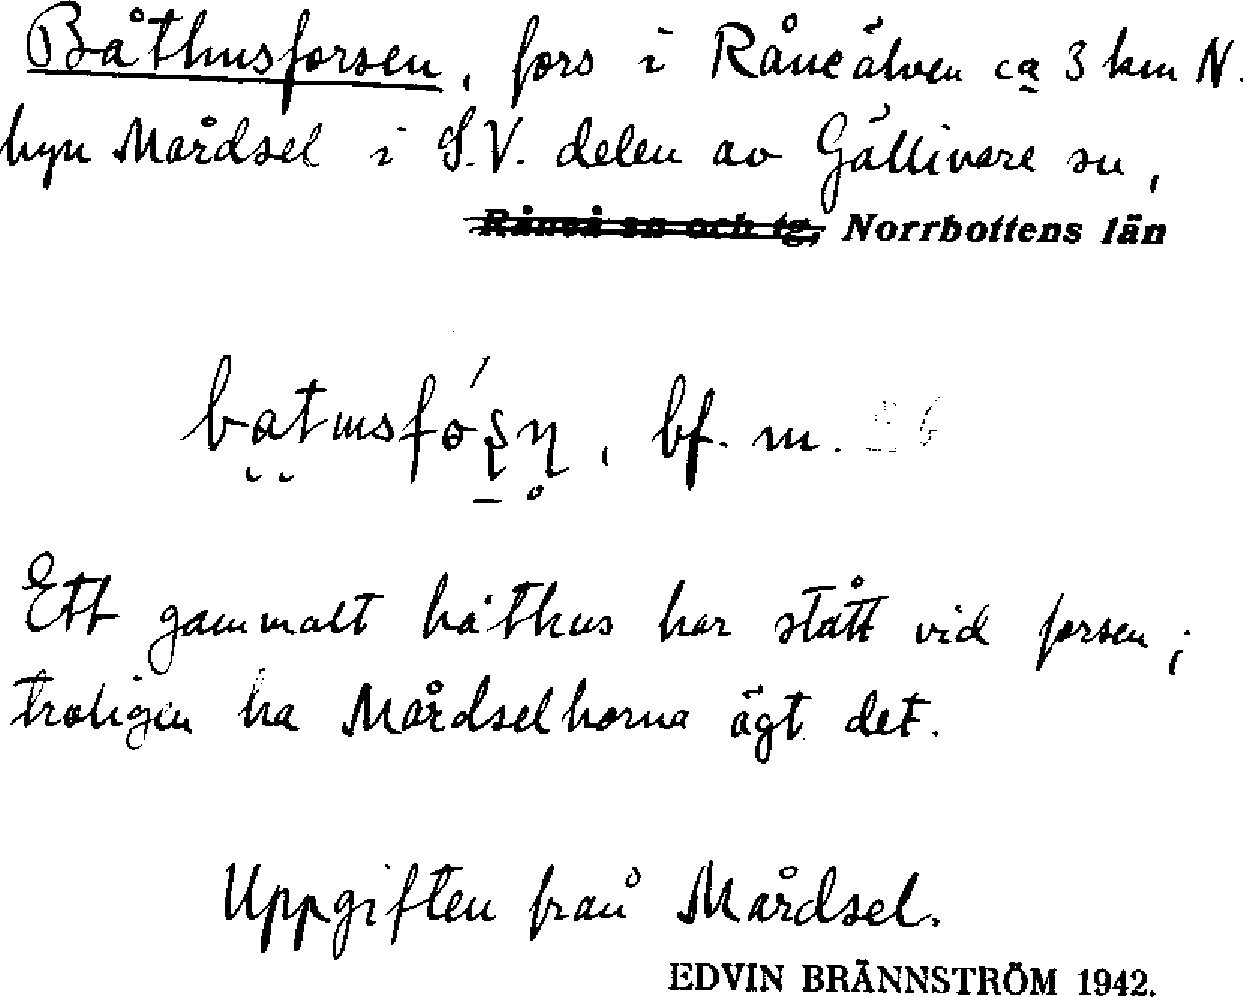 Båthusforsen, fors i Råneälven ca 3 km N.
byn Mårdsel i S.V. delen av Gällivare sn,
Råneå sn och tg, Norrbottens län
bf. m.
Ett gammalt båthus har stått vid forsen;
troligen ha Mårdselborna ägt det.
Uppgiften från Mårdsel.
EDVIN BRÄNNSTRÖM 1942.